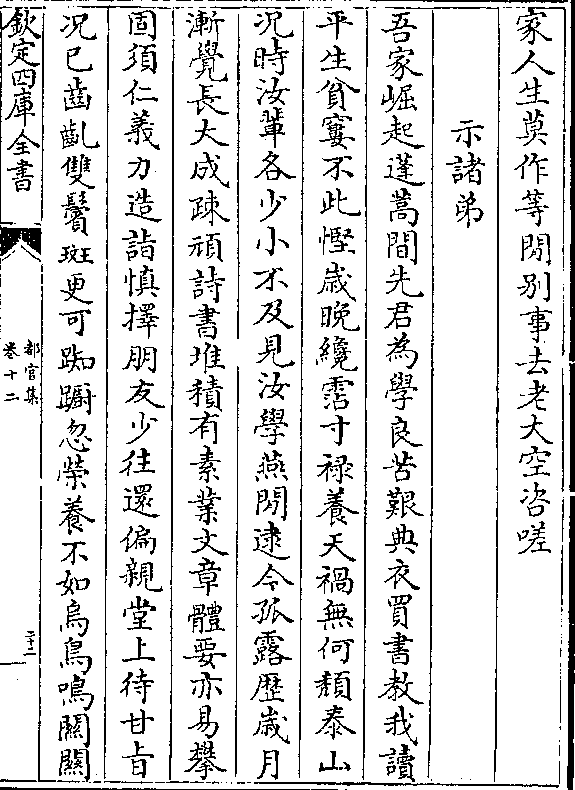 家人生莫作等閒別事去老大空咨嗟
示諸弟
吾家崛起蓬蒿間先君為學良苦艱典衣買書教我讀
平生貧窶不此慳歲晚纔霑寸祿養天禍無何頹泰山
況時汝輩各少小不及見汝學燕閒逮今孤露歴歲月
漸覺長大成疎頑詩書堆積有素業文章體要亦易攀
固須仁義力造詣慎擇朋友少往還偏親堂上待甘㫖
况已齒齓雙鬢斑更可踟蹰忽榮養不如烏鳥鳴關關
欽定四庫全書
都官集
卷十二
二十二